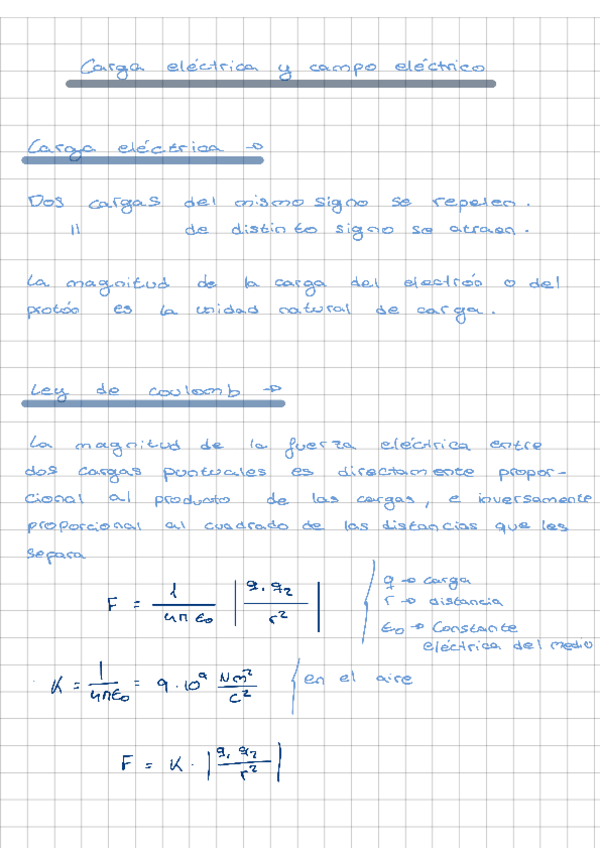 Carga eléctrica y campo eléctrico
Carga eléctrica →
Dos cargas del mismo signo se repelen.
" de distinto signo se atraen.
La magnitud de la carga del electrón o del
protón es la unidad natural de carga.
Ley de coulomb →
La magnitud de la fuerza eléctrica entre
dos cargas puntuales es directamente propor-
cional al producto de las cargas, e inversamente
proporcional al cuadrado de las distancias que les
separa
F = 1 / 4πε₀ | q₁ q₂ / r² |
q → carga
r → distancia
ε₀ → Constante
eléctrica del medio
K = 1 / 4πε₀ = 9 · 10⁹ Nm² / C² { en el aire
F = K · | q₁ q₂ / r² |